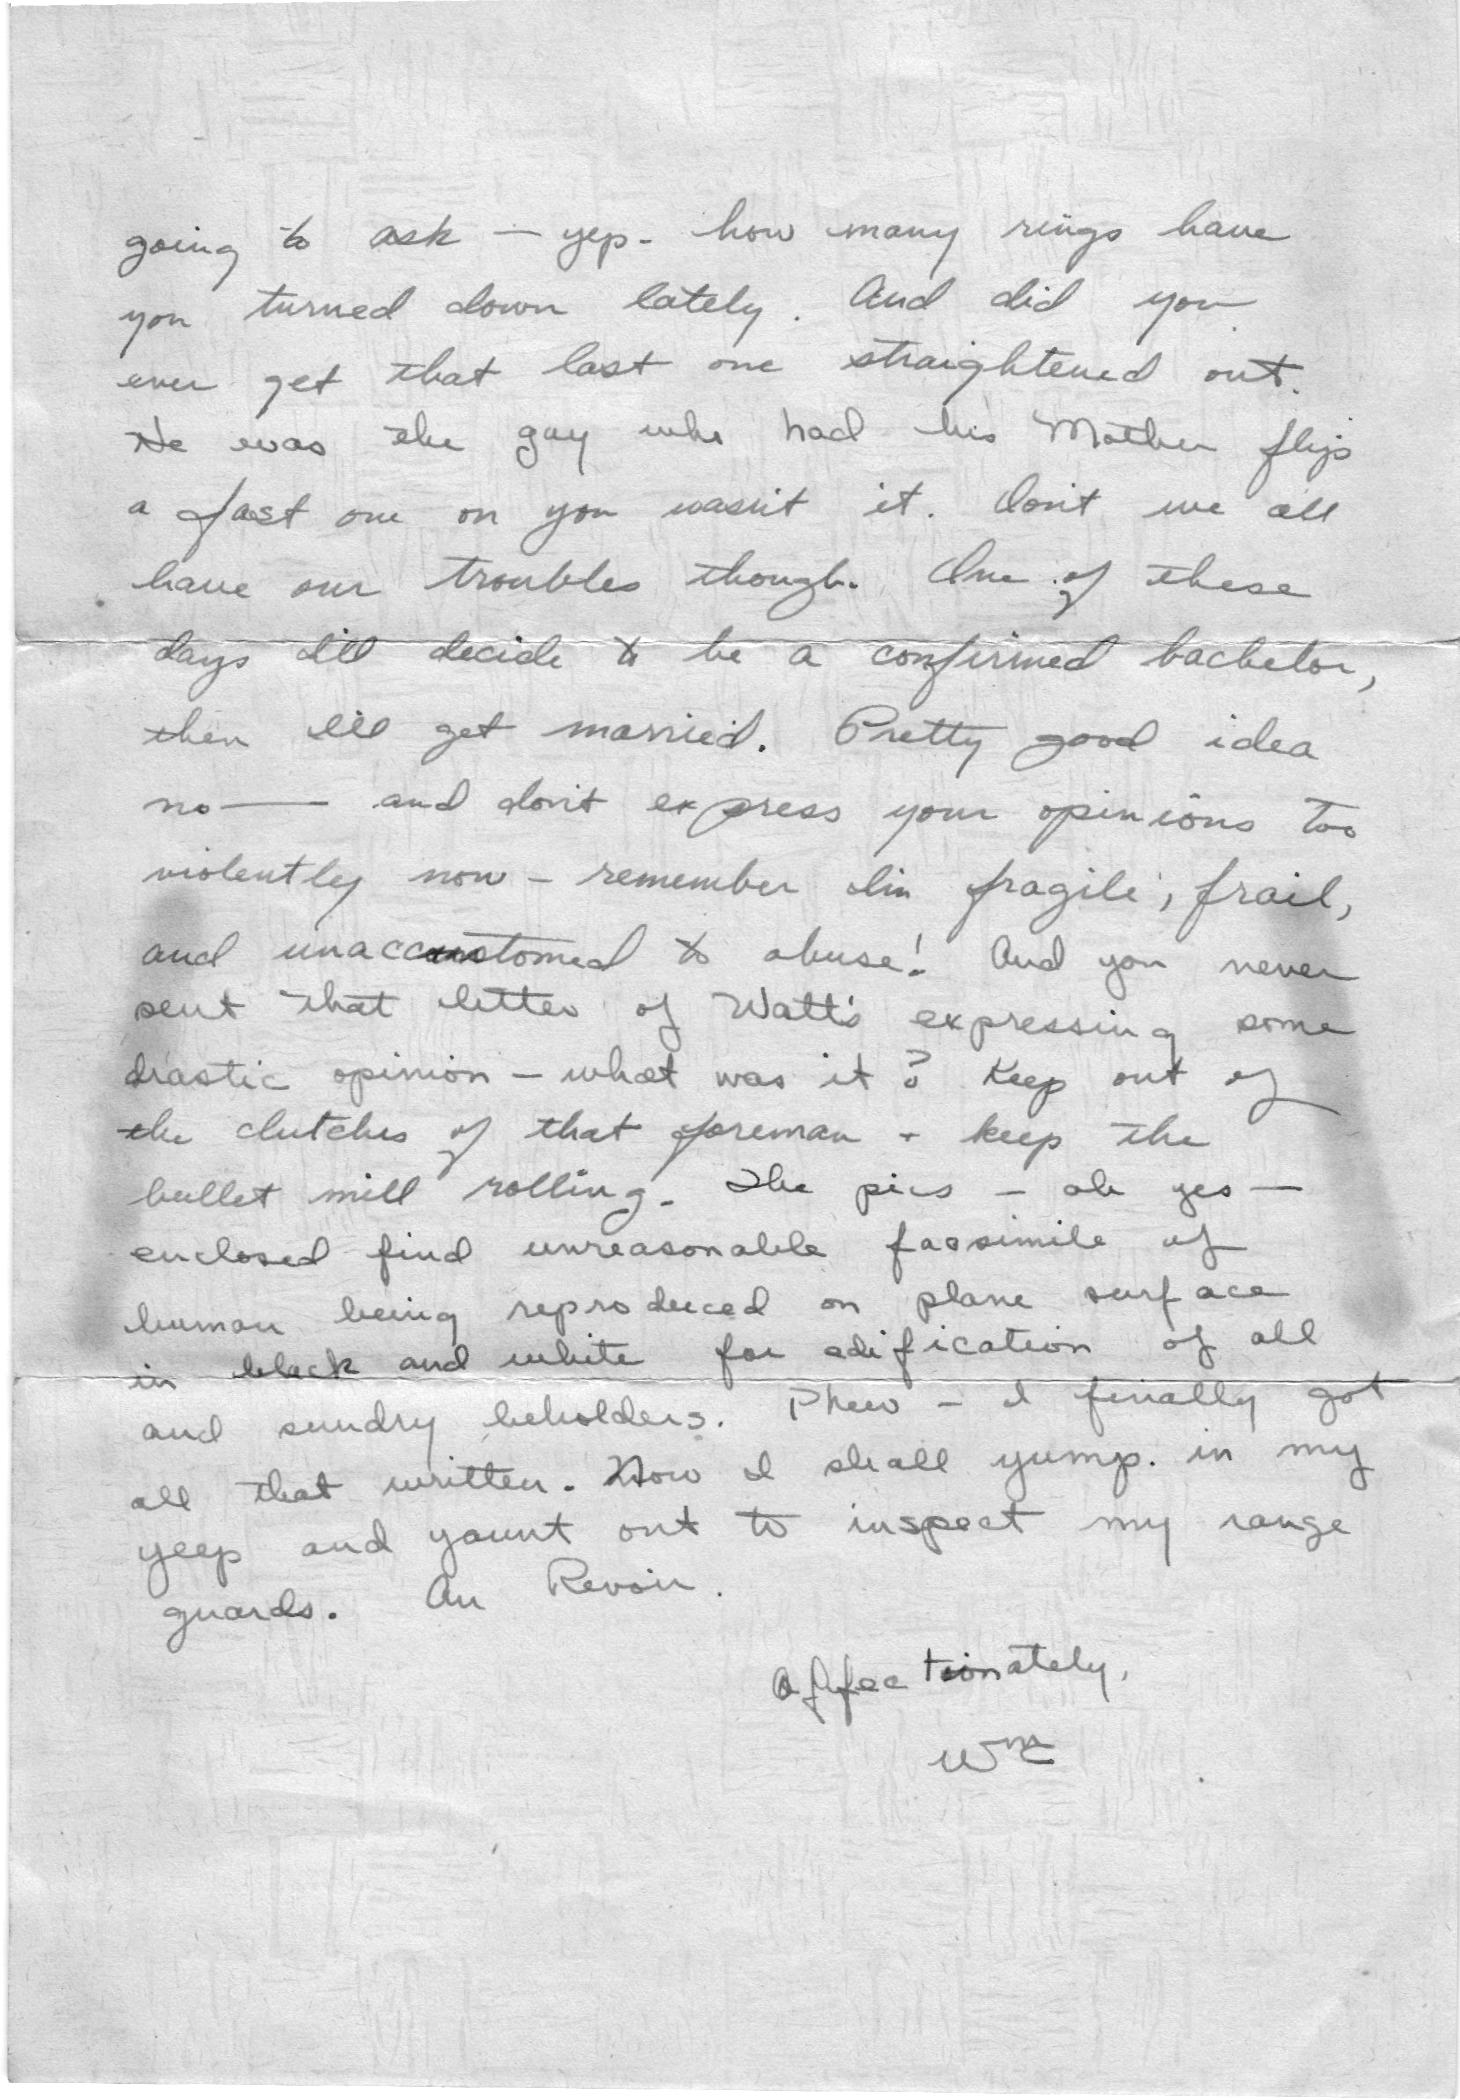 going to ask — yep - how many rings have
you turned down lately. And did you
ever get that last one straightened out.
He was the guy who had his Mother flips
a fast one on you wasn't it. Don't we all
have our troubles though. One of these
days I'll decide to be a confirmed bachelor,
then I'll get married. Pretty good idea
no — and don't express your opinions too
violently now - remember I'm fragile, frail,
and unaccustomed to abuse! And you never
sent that letter of Watt's expressing some
drastic opinion - what was it? Keep out of
the clutches of that foreman + keep the
bullet mill rolling. The pics - oh yes —
enclosed find unreasonable facsimile of
human being reproduced on plane surface
in black and white for edification of all
and sundry beholders. Phew - I finally got
all that written. Now I shall yump in my
yeep and yaunt out to inspect my range
guards. Au Revoir.
Affectionately,
Wm